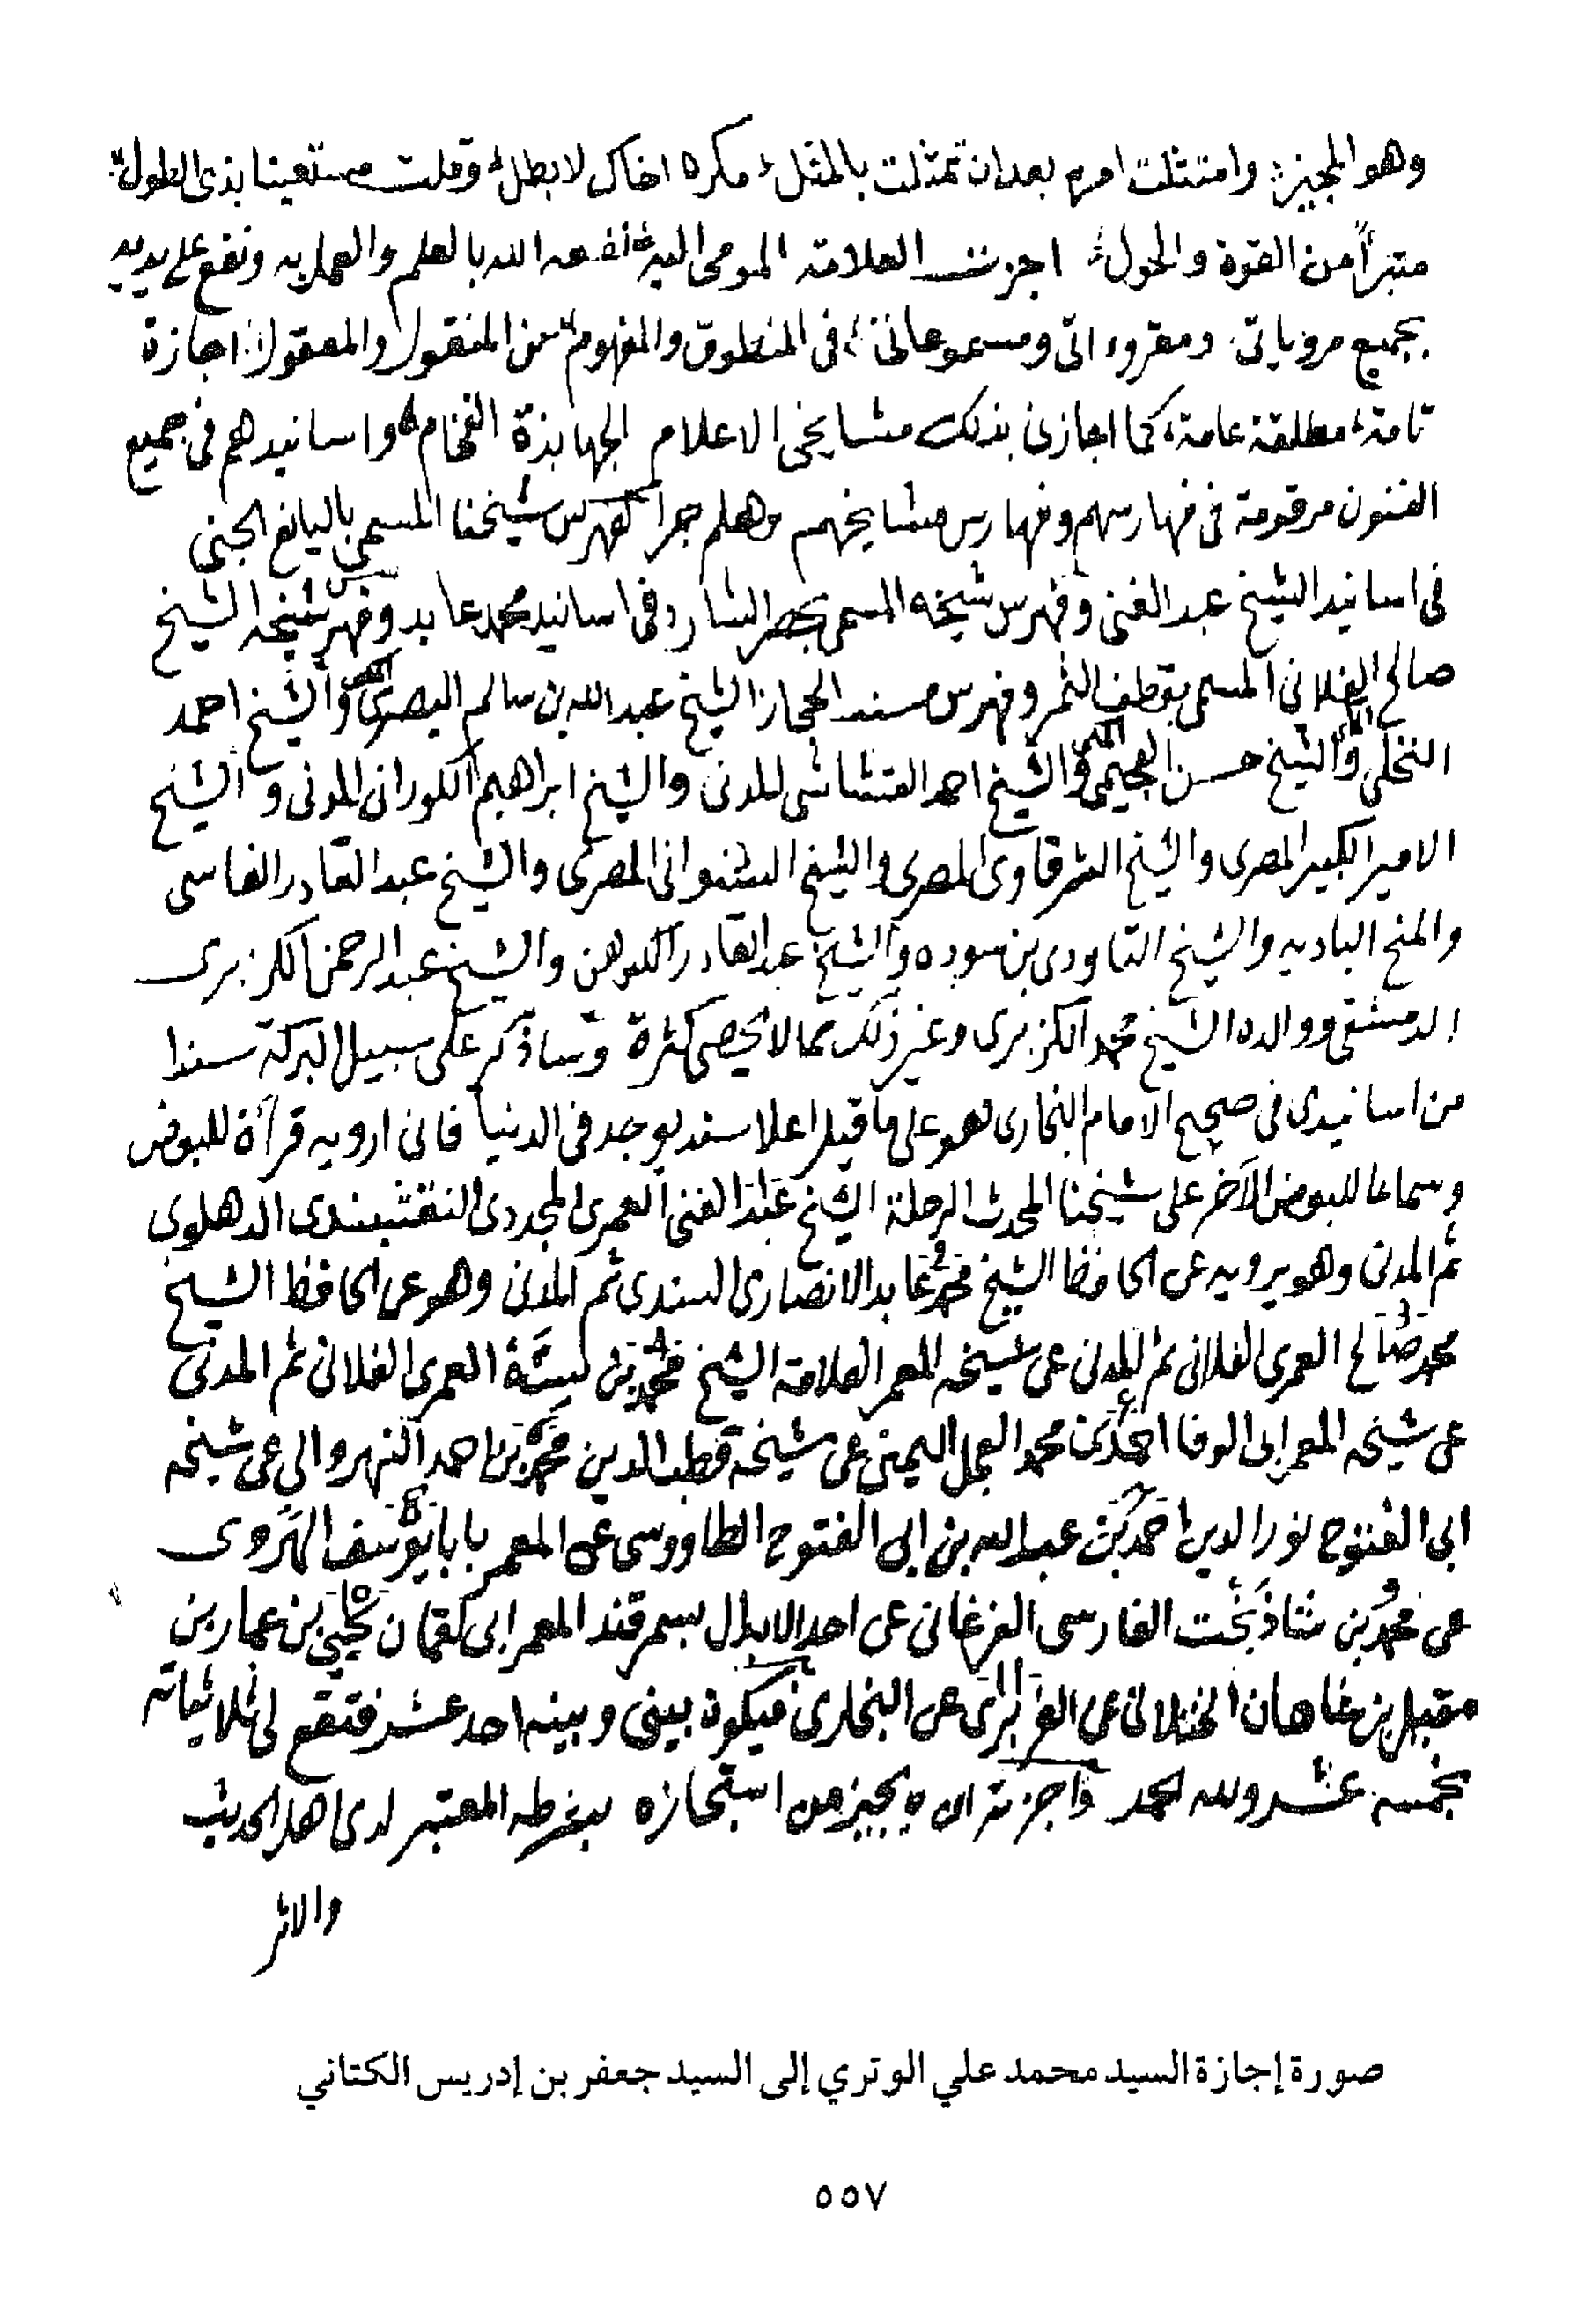 وهو المجيز؛ وامتثلت امره بعد ان تمثلت بالمثل، مكره اخاك لا بطل، وقلت مستعينا بذى الطول،
متبرأً من القوة والحول، اجزت العلامة المومى اليه نفعه الله بالعلم والعمل به ونفع على يديه
بجميع مروياتى ومقروءاتى ومسموعاتى، فى المنطوق والمفهوم، من المنقول والمعقول؛ اجازة
تامة، مطلقة عامة، كما اجازنى بذلك مشايخى الاعلام الجهابذة الفخام، واسانيدهم فى جميع
الفنون مرقومة فى فهارسهم وفهارس مشايخهم وهلم جرا كفهرس شيخنا المسمى باليانع الجنى
فى اسانيد الشيخ عبد الغنى وفهرس شيخه المسمى بحصر الشارد فى اسانيد محمد عابد وفهرس شيخه الشيخ
صالح الفلانى المسمى بقطف الثمر وفهرس مسند الحجاز الشيخ عبد الله بن سالم البصرى المكى والشيخ احمد
النخلى المكى والشيخ حسن العجيمى المكى والشيخ احمد القشاشى المدنى والشيخ ابراهيم الكورانى المدنى والشيخ
الامير الكبير المصرى والشيخ الشرقاوى المصرى والشيخ الشنوانى المصرى والشيخ عبد القادر الفاسى
والمنح الباديه والشيخ التاودى بن سوده والشيخ عبد القادر الكوهن والشيخ عبد الرحمن الكزبرى
الدمشقى ووالده الشيخ محمد الكزبرى وغير ذلك مما لا يحصى كثرة وساذكر على سبيل البركة سندا
من اسانيدى فى صحيح الامام البخارى هو على ما قيل اعلا سند يوجد فى الدنيا فانى ارويه قرآة للبعض
وسماعا للبعض الآخر على شيخنا المحدث الرحلة الشيخ عبد الغنى العمرى المجددى النقشبندى الدهلوى
ثم المدنى وهو يرويه عن الحافظ الشيخ محمد عابد الانصارى السندى ثم المدنى وهو عن الحافظ الشيخ
محمد صالح العمرى الفلانى ثم المدنى عن شيخه المعمر العلامة الشيخ محمد بن سِنَّة العمرى الفلانى ثم المدنى
عن شيخه المعمر ابى الوفا احمد بن محمد العجل اليمنى عن شيخه قطب الدين محمد بن احمد النهروالى عن شيخه
ابى الفتوح نور الدين احمد بن عبد الله بن ابى الفتوح الطاووسى عن المعمر بابا يوسف الهَروى
عن محمد بن شاذَبَخْت الفارسى الفرغانى عن احد الابدال بسمرقند المعمر ابى لقمان يحيى بن عمار بن
مقبل بن شاهان الختلانى عن الفربرى عن البخارى فيكون بينى وبينه احد عشر فتقع لى ثلاثياته
بخمسة عشر ولله الحمد واجزته ان يجيز من استجازه بشرطه المعتبر لدى اهل الحديث
والاثر
صورة إجازة السيد محمد علي الوتري إلى السيد جعفر بن إدريس الكتاني
٥٥٧